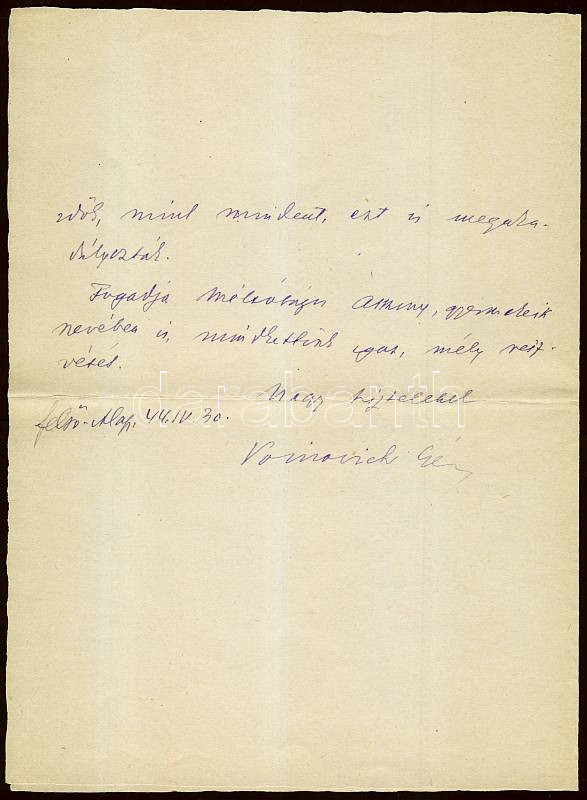 idők, mint mindent, ezt is megaka-
dályozták.
Fogadja Méltóságos Asszony, gyermekeik
nevében is, mindkettőnk igaz, mély rész-
vétét.
Nagy tisztelettel
Felső-Alap, 44. IV. 30.
Voinovich Géza
darabanth